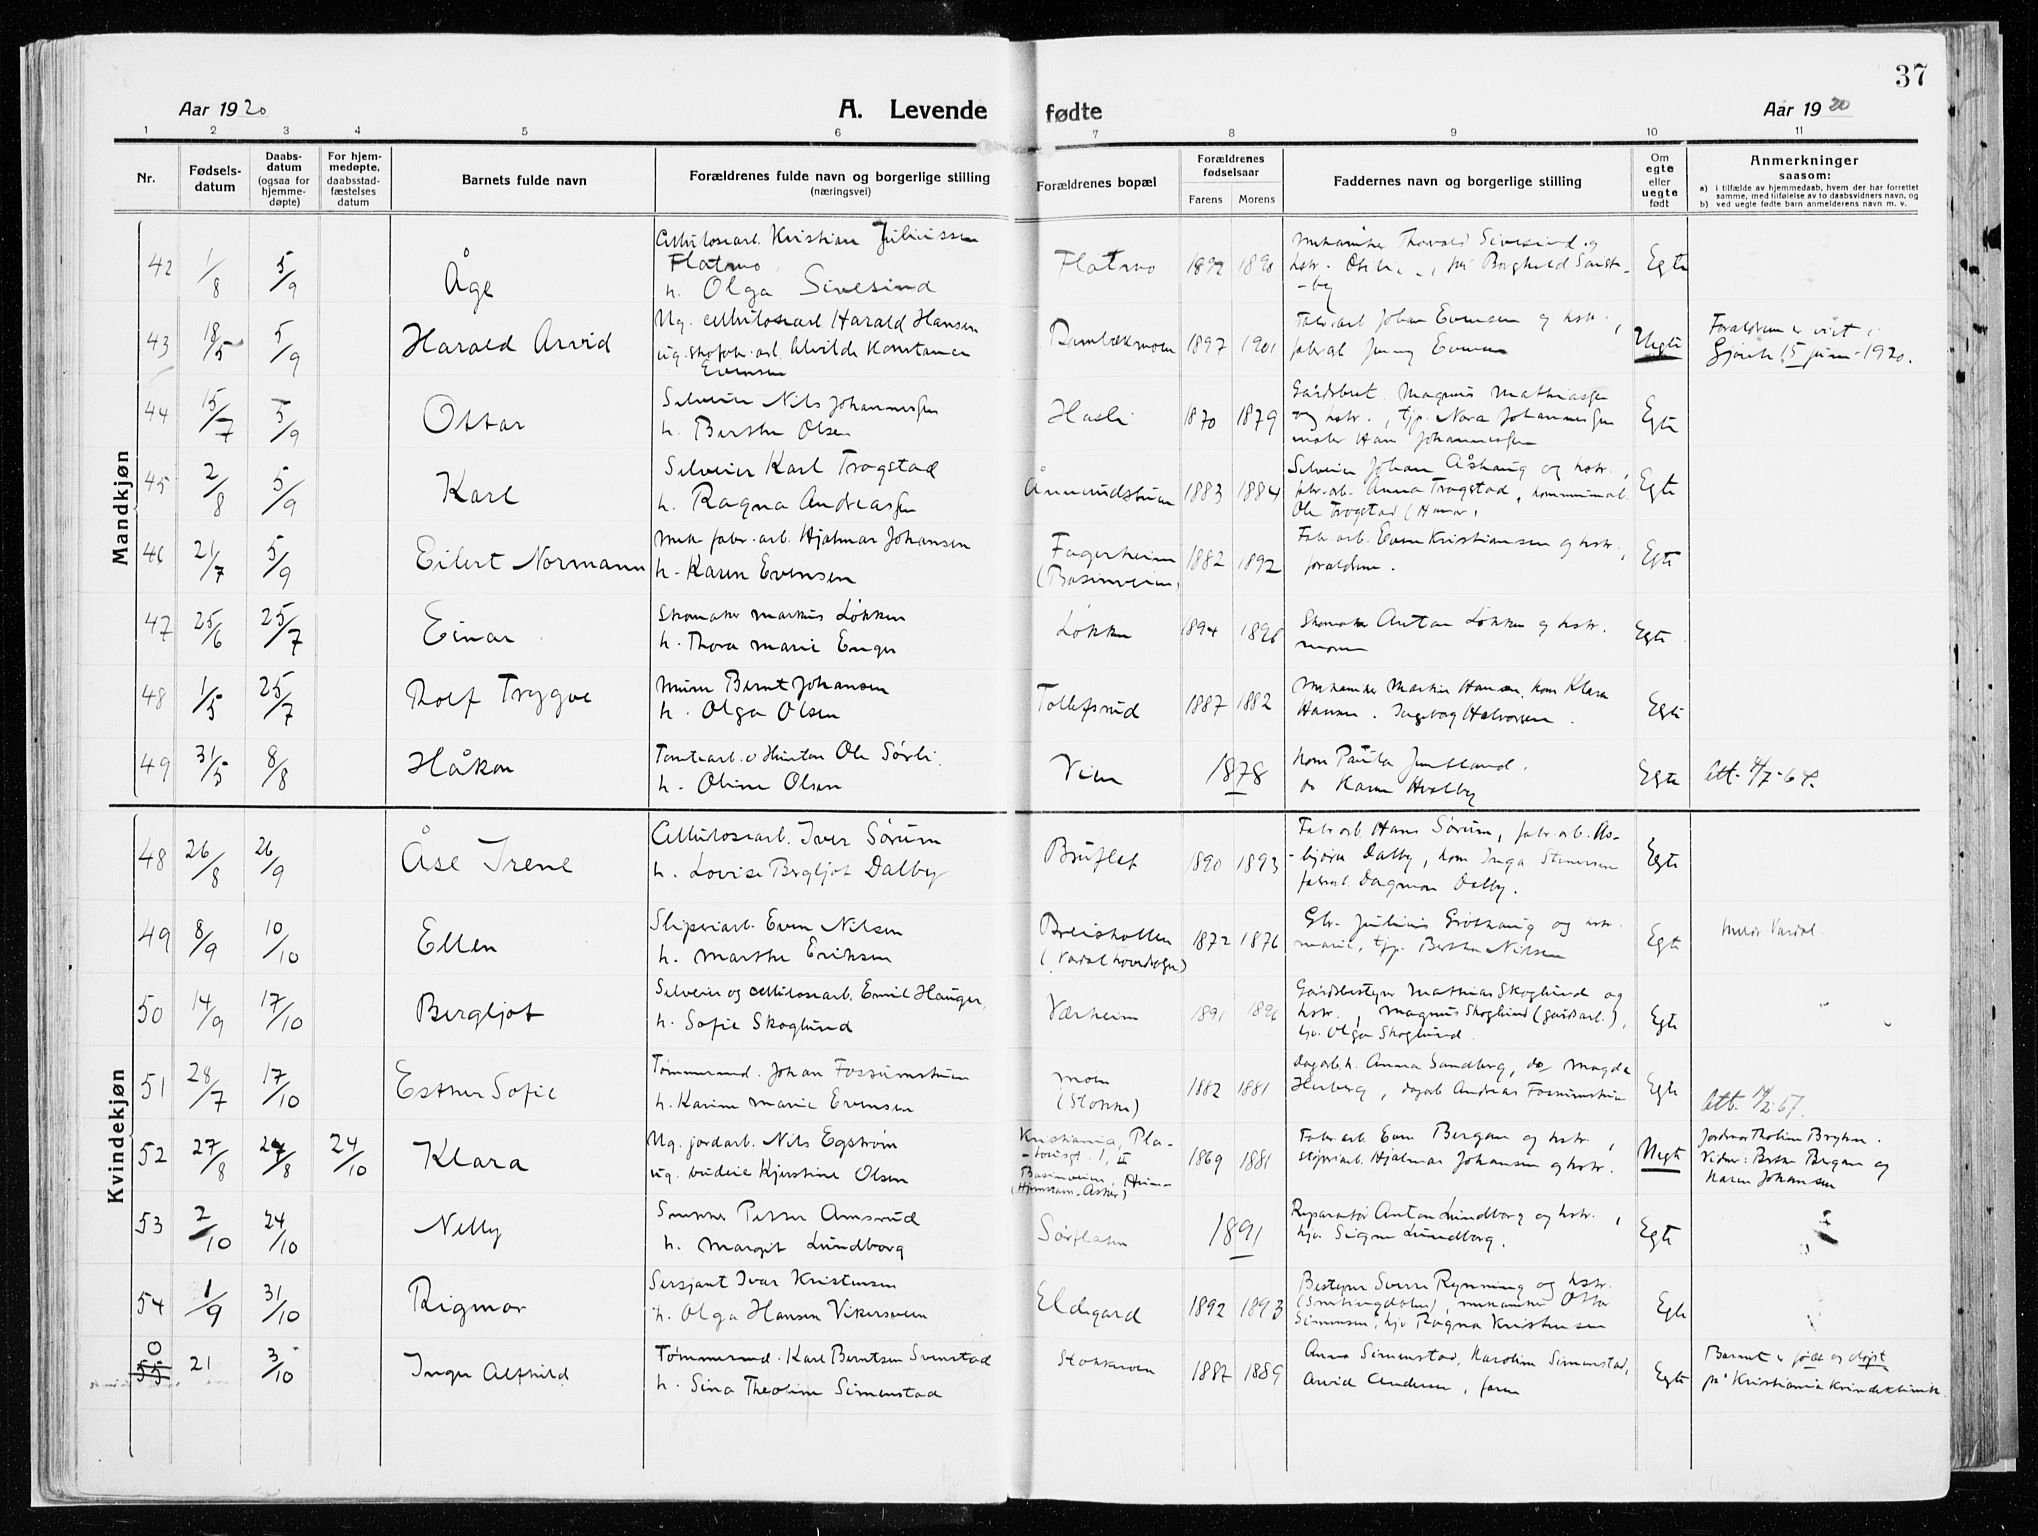 37
Aar 1920 A. Levende fødte Aar 1920
1 2 3 4 5 6 7 8 9 10 11
Nr. Fødsels-datum Daabs-datum (ogsaa for hjemme-døpte) For hjem-medøpte, daabsstad-fæstelses datum Barnets fulde navn Forældrenes fulde navn og borgerlige stilling (næringsvei) Forældrenes bopæl Forældrenes fødselsaar Farens Morens Faddernes navn og borgerlige stilling Om egte eller uegte født Anmerkninger saasom:
a) i tilfælde av hjemmedaab, hvem der har forrettet samme, med tilføielse av to daabsvidners navn, og
b) ved uegte fødte barn anmelderens navn m. v.
Mandkjøn
42 1/8 5/9 Åge Cellulosearb. Kristian Juliussen
Flatmo
h. Olga Sivesind Flatmo 1892 1890 Mekaniker Thorvald Sivesind og
hstr. Borghild Egte
43 18/5 5/9 Harald Arvid Ug. cellulosearb Harald Hansen
ug. skofabr. arb. Alvilde Konstance
Evensen 1897 1901 Fabr.arb Johan Evensen og hstr.,
fabr.arb Jenny Evensen Uegte Forældrene er viet i
Gjøvik 15 juni 1920.
44 15/7 5/9 Ottar Selveier Nils Johannessen
h. Berthe Olsen Hasli 1870 1879 Gårdsbest. Magnus Mathiassen
og hstr., tjp. Nora Johannessen
maler Hans Johannessen Egte
45 2/8 5/9 Karl Selveier Karl Trogstad
h. Ragna Andreassen Ånnerudstuen 1883 1884 Selveier Johan Åshaug og hstr.,
fabr.arb. Anna Trogstad,
Ole Trogstad (Hamar) Egte
46 21/7 5/9 Eilert Normann Mek fabr. arb. Hjalmar Johansen
h. Karen Evensen Fagerheim
(Basinveien) 1882 1892 Fabr.arb. Even Kristiansen og hstr.,
forældrene. Egte
47 25/6 25/7 Einar Skomaker Markus Løkken
h. Thora Marie Enger Løkken 1894 1896 Skomaker Anton Løkken og hstr.
moren Egte
48 1/5 25/7 Rolf Trygve Murer Bernt Johansen
h. Olga Olsen Tollefsrud 1887 1882 Mekaniker Martin Hansen, kom Klara
Hansen. Ingeborg Halvorsen. Egte
49 31/5 8/8 Håkon Tomtearb. v Hunton Ole Sørli.
h. Oline Olsen Vien 1878 kom Paula Jemtland.
do Karen Hvalby Egte Att. 4/7-64.
Kvindekjøn
48 26/8 26/9 Åse Irene Cellulosearb. Iver Sørum
h. Lovise Bergljot Dalby Bruflat 1890 1893 Fabr.arb. Hans Sørum, fabr.arb. As-
-bjørn Dalby, kom Inga Stenersen
fabr.arb. Dagmar Dalby. Egte
49 8/9 10/10 Ellen Sliperiarb. Even Nilsen
h. Marthe Eriksen Breiskallen
(Vardal hovedsogn) 1872 1876 Gbr. Julius Grøthaug og hstr.
Marie, tjp. Berthe Nilsen Egte Meldt Vardal.
50 14/9 17/10 Bergljot Selveier og cellulosearb. Emil Hauger,
h. Sofie Skoglund Værheim 1891 1896 Gårdsbestyrer Mathias Skoglund og
hstr., Magnus Skoglund (gårdsarb.),
hjv. Olga Skoglund. Egte
51 28/7 17/10 Esther Sofie Tømmermd. Johan Fossumstuen
h. Karine Marie Evensen Moen
(Stokke) 1882 1881 Dagarb.h. Anna Sandberg, do Magda
Herberg, dagarb Andreas Fossumstuen Egte Att. 14/2-67.
52 27/8 27/8 24/10 Klara Ug. jordarb. Nils Egstrøm
ug. budeie Kjerstine Olsen Kristiania, Pla-
-tousgt. 1, II
Basinveien,
(Hjemstavn-Asker) 1869 1881 Fabr.arb Even Bergan og hstr.,
sliperiarb. Hjalmar Johansen og hstr. Uegte Jordmor Tholine Bryhn.
Vidner: Berthe Bergan og
Karen Johansen
53 2/10 24/10 Nelly Snekker Petter Amsrud
h. Margit Lundborg Sørflaten 1891 Reparatør Anton Lundborg og hstr.,
hjv. Signe Lundborg. Egte
54 1/9 31/10 Rigmor Sersjant Ivar Kristensen
h. Olga Hansen Vikersveen Eldegard 1892 1893 Bestyrer Sverre Rynning og hstr.
(Smebyngdalen), mekaniker Otto
Simensen, hjv Ragna Kristensen Egte
0
55 21 3/10 Inger Alfhild Tømmermd. Karl Berntsen Svenstad
h. Sina Theoline Simenstad Stokkmoen 1887 1889 Anna Simenstad, Karoline Simenstad,
Arvid Andersen, faren Egte Barnet er født og døpt
på Kristiania Kvindeklinik